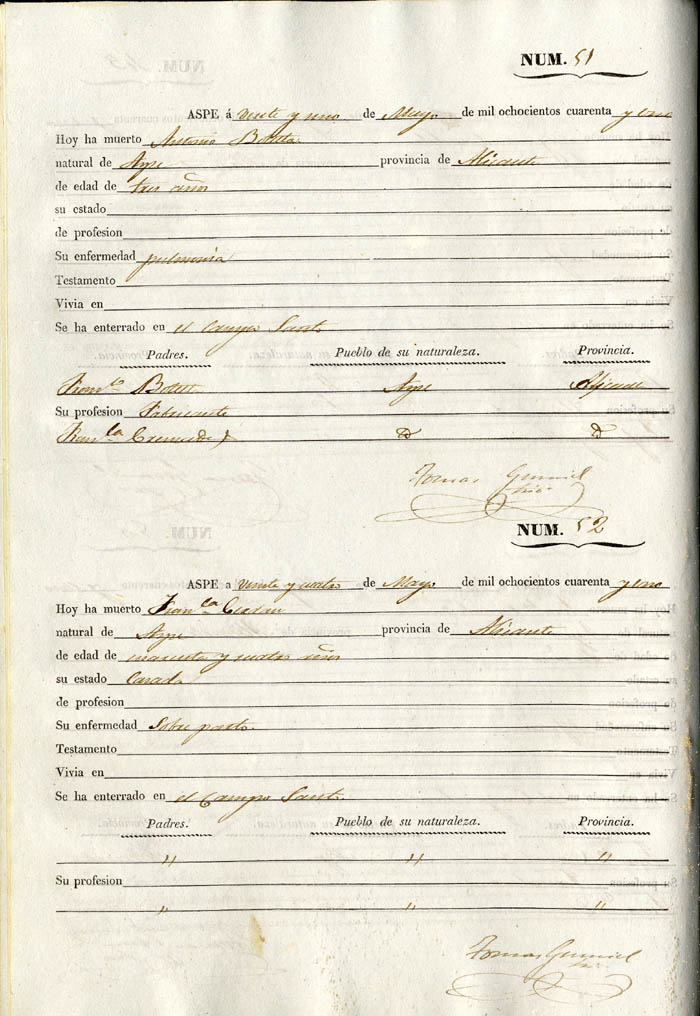 NUM. 51
ASPE á veinte y uno de Mayo de mil ochocientos cuarenta y uno
Hoy ha muerto Antonio Botella
natural de Aspe provincia de Alicante
de edad de tres años
su estado
de profesion
Su enfermedad pulmonia
Testamento
Vivia en
Se ha enterrado en el Campo Santo
Padres. Pueblo de su naturaleza. Provincia.
Franco Aspe Alicante
Su profesion Fabricante
Franla Cremades D D
Tomas
NUM. 52
ASPE a veinte y cuatro de Mayo de mil ochocientos cuarenta y uno
Hoy ha muerto Franla
natural de Aspe provincia de Alicante
de edad de cuarenta y cuatro años
su estado Casada
de profesion
Su enfermedad Sobre parto
Testamento
Vivia en
Se ha enterrado en el Campo Santo
Padres. Pueblo de su naturaleza. Provincia.
" " "
Su profesion
" " "
Tomas